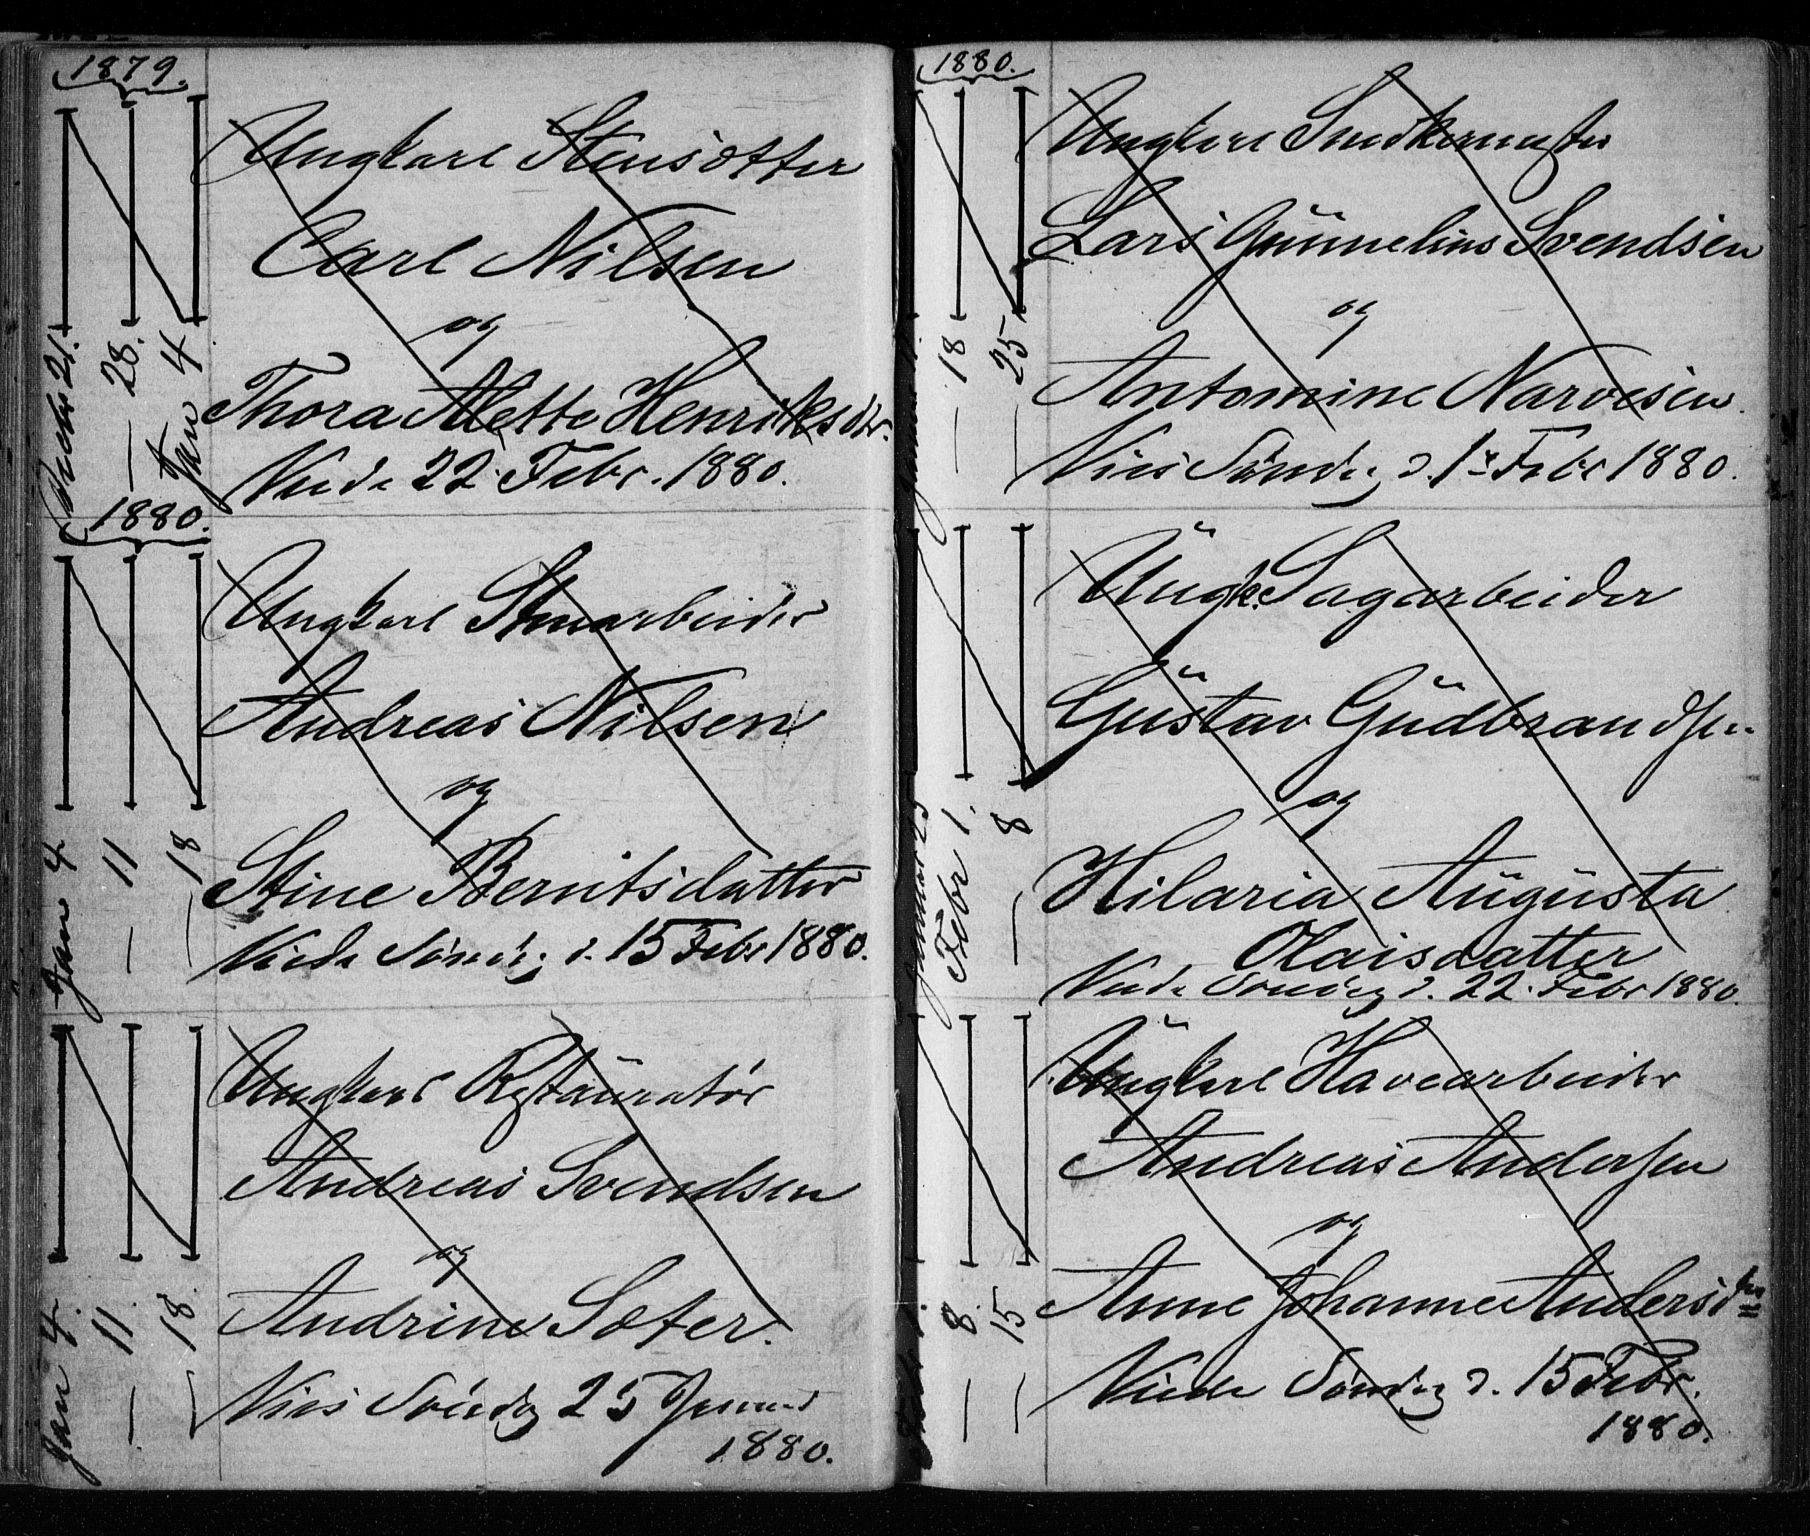 1879.
Ungkarl Stensøtter
Carl Nilsen
og
Thora Alette Henriksdtr.
Viede 22. Febr. 1880.
21.
— 28.
Jan 4
1880.
Ungkarl Stenarbeider
Andreas Nilsen
og
Stine Berntsdatter
Viede Søndag d. 15 Febr 1880.
Jan 4
— 11
— 18
Ungkarl Restauratør
Andreas Svendsen
og
Andrine Sæter.
Vies Søndag 25 Januar
1880.
Jan 4
— 11.
— 18
1880.
Ungkarl Snedkermester
Lars Gunnelius Svendsen
og
Antomine Narvesen
Vies Søndag d. 1ste Febr 1880.
— 18
— 25
Ungk. Sagarbeider
Gustav Gudbrandsen
og
Hilaria Augusta
Olaisdatter
Viede Søndag d. 22. Febr 1880.
Januar 25
Febr 1.
— 8
Ungkarl Havearbeider
Andreas Andersen
og
Anne Johanne Andersdtr
Viede Søndag d. 15 Febr.
1880.
— 8.
— 15